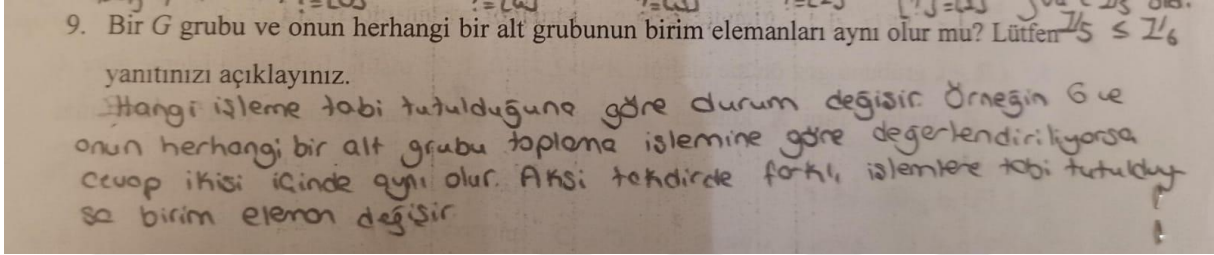 9. Bir G grubu ve onun herhangi bir alt grubunun birim elemanları aynı olur mu? Lütfen ℤ5 ≤ ℤ6
yanıtınızı açıklayınız.
Hangi işleme tabi tutulduğuna göre durum değişir. Örneğin G ve
onun herhangi bir alt grubu toplama işlemine göre değerlendiriliyorsa
cevap ikisi içinde aynı olur. Aksi takdirde farklı işlemlere tabi tutulduy
sa birim eleman değişir